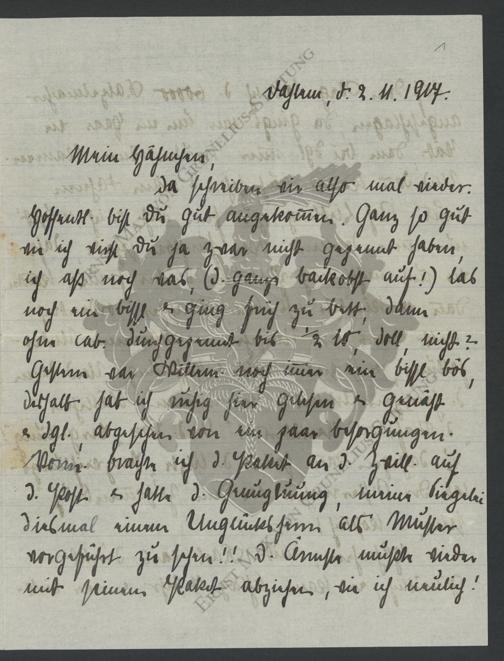 Dahlem, d. 2. 11. 1917.
Mein Hähnchen
Da schreiben wir also mal wieder.
Hoffentl. bist Du gut angekommen. Ganz so gut
wie ich wirst Du ja zwar nicht gepennt haben,
ich aß noch was, (d. ganze Backobst auf!) las
noch ein bissl & ging früh zu Bett, dann
ohne durchgepennt bis 1/2 10, doll, nicht?
Gestern war Willem noch immer ein bissl bös,
deshalb hab ich ruhig hier gelesen & genäht
& dgl, abgesehen von ein paar besorgungen.
Vorm. brachte ich d. Paket an d. Zwill. auf
d. Post & hatte d. Genugtuung, meine Siegelei
diesmal einem Unglücksherrn als Muster
vorgeführt zu sehen!! D. Ärmste mußte wieder
mit seinem Paket abziehen, wie ich neulich!
ERNST MARTIN CORNELIUS-STIFTUNG